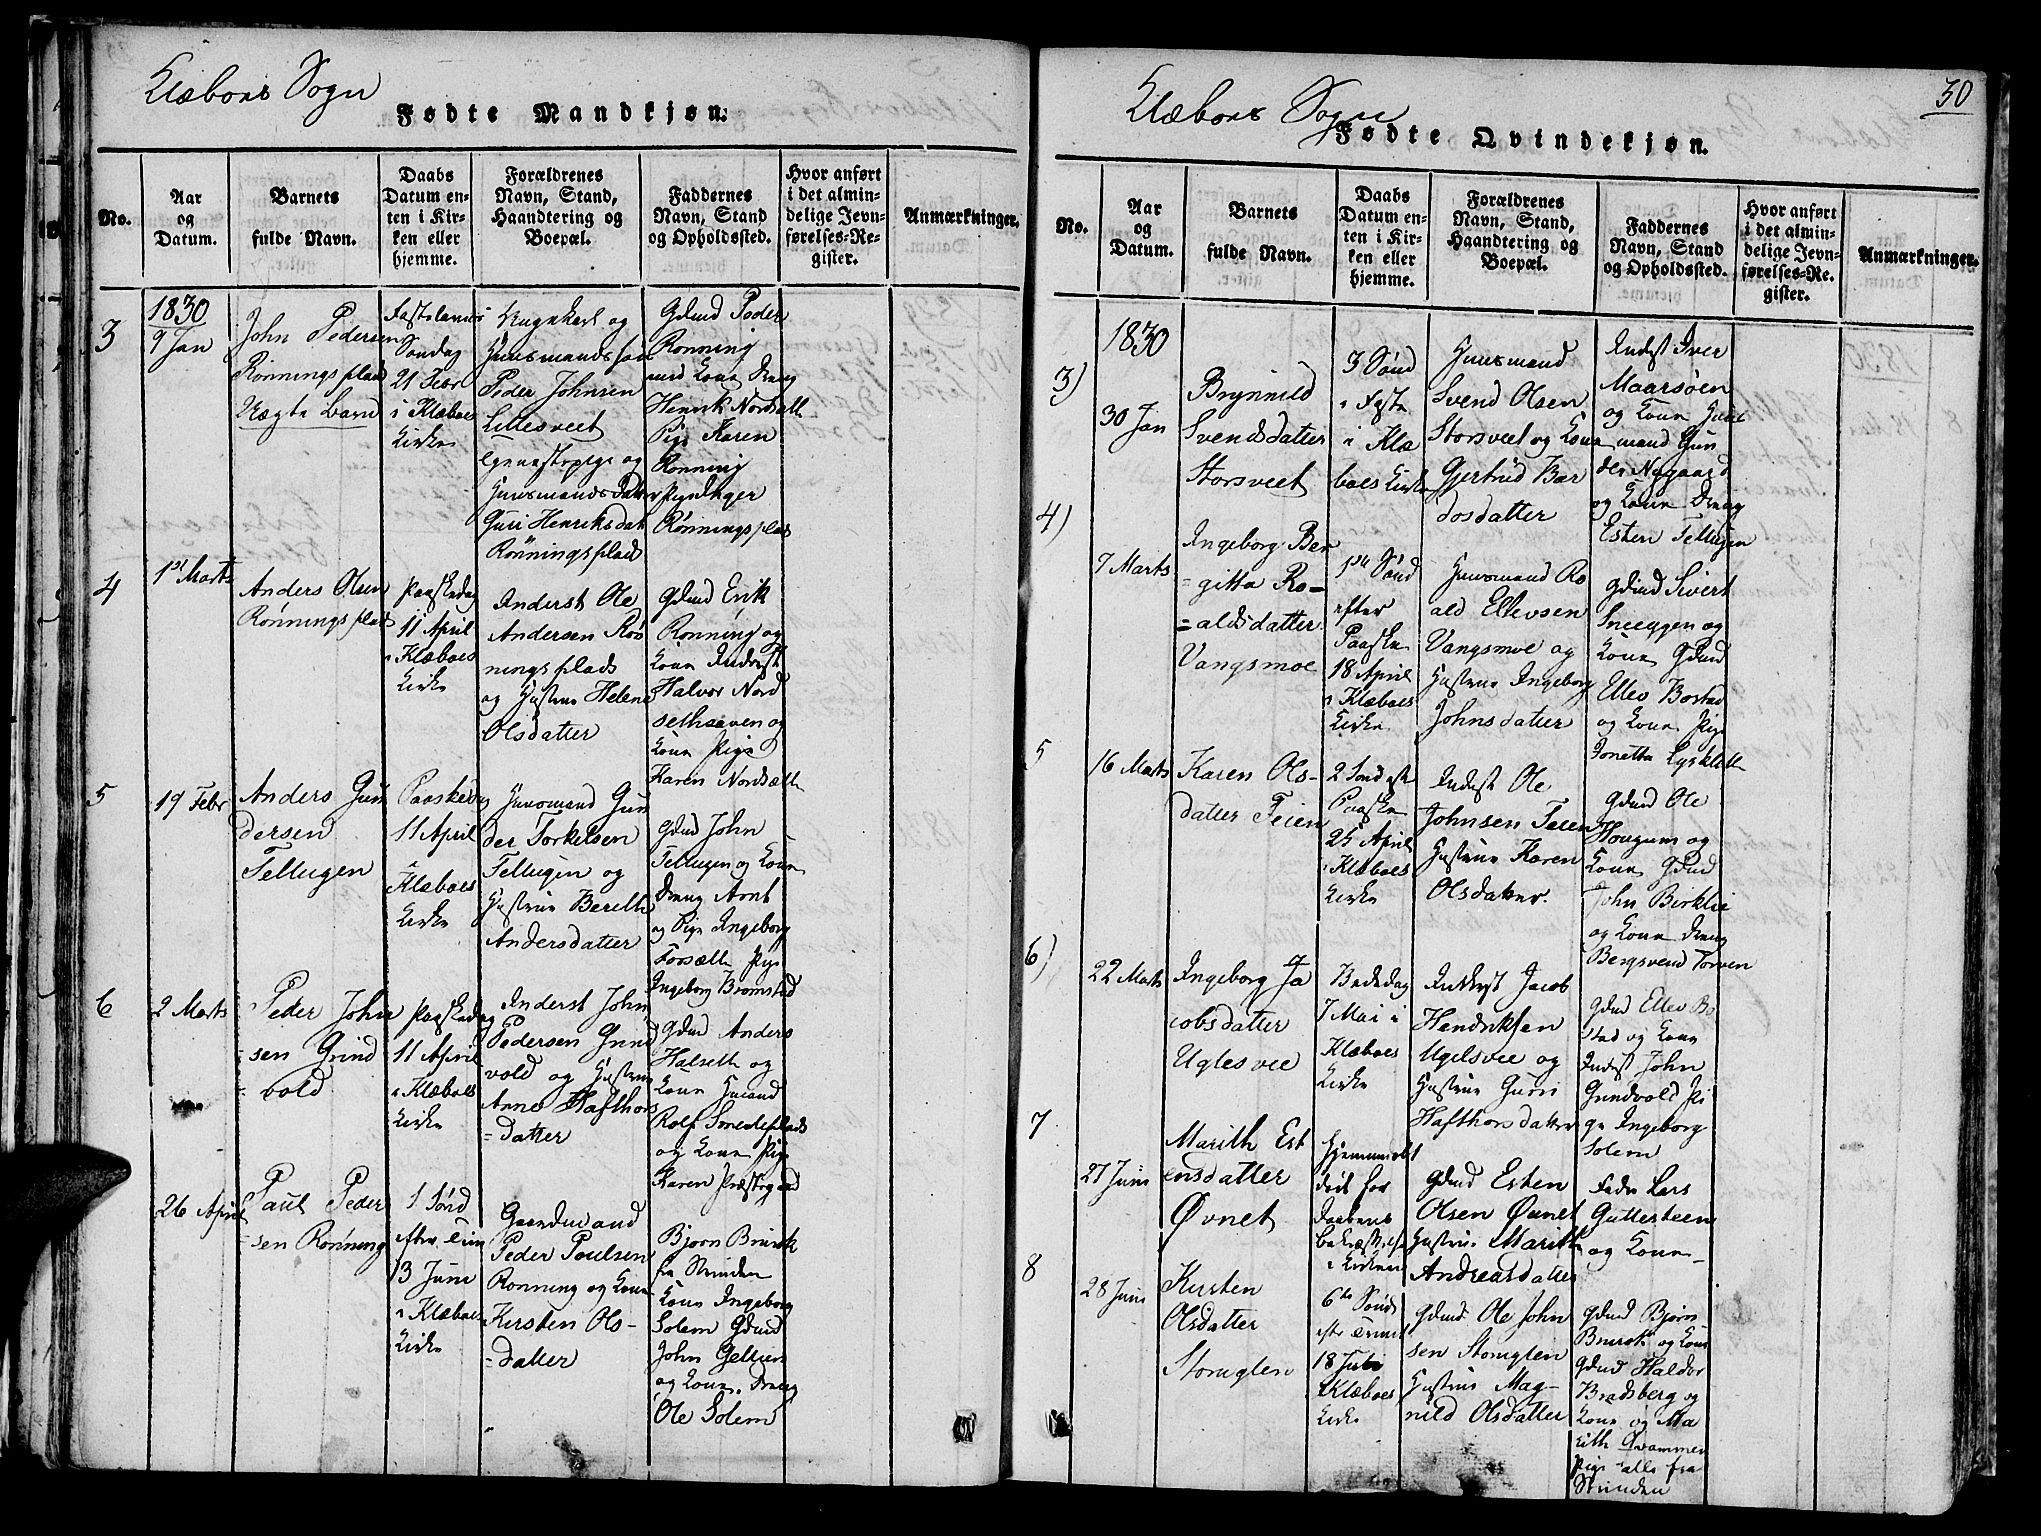 Klæboes Sogn
Fødte Mandkjøn.
No.
Aar
og
Datum.
Barnets
fulde Navn.
Daabs
Datum en-
ten i Kir-
ken eller
hjemme.
Forældrenes
Navn, Stand,
Haandtering og
Boepæl.
Faddernes
Navn, Stand
og Opholdssted.
Hvor anført
i det almin-
delige Jevn-
førelses-Re-
gister.
Anmærkninger.
3
1830
9 Jan
John Pedersen
Rønningsplad
Uægte Barn
Fastelavns
Søndag
21 Febr
i Klæboes
Kirke
Ungkarl og
Huusmandssøn
Peder Johnsen
Lillesveet
og
Huusmandsdatter
Guri Henriksdat
Rønningsplads
Gdmd Peder
Rønning
med Kone Dreng
Henrik Nordsætt
Pige Karen
Rønning
Rønningsplads
4
1ste Marts
Anders Olsen
Rønningsplads
Paaskedag
11 April
i Klæboes
Kirke
Inderst Ole
Andersen Røn
ningsplads
og Hustrue Helene
Olsdatter
Gdmd Erik
Rønning og
Kone Inderst
Halvor Nord
sethaaven og
Kone Pige
Karen Nordsætt
5
19 Febr
Anders Gun
dersen
Tellugen
Paaskedag
11 April
i Klæboes
Kirke
Huusmand Gun
der Torkelsen
Tellugen og
Hustrue Bereth
Andersdatter
Gdmd John
Tellugen og Kone
Dreng Arnt
og Pige Ingeborg
Forsæth Pige
Ingeborg Bromstad
6
2 Marts
Peder John
sen Grind
vold
Paaskedag
11 April
i Klæboes
Kirke
Inderst John
Pedersen Grind
vold og Hustrue
Anne Hafthors
datter
Gdmd Anders
Halseth og
Kone Huusmand
Rolf Smedeplads
og Kone Pige
Karen Præstegaard
26 April
Paul Peder
sen Rønning
1 Sønd
efter Trin
13 Juni
i Klæboes
Kirke
Gaardmand
Peder Poulsen
Rønning og Kone
Kirsten Ols-
datter
Bjørn Bratsk
fra Strinden
Kone Ingeborg
Solem Gdmd
John Gellien
og Kone. Dreng
Ole Solem
Klæboes Sogn
30
Fødte Qvindekjøn.
No.
Aar
og
Datum.
Barnets
fulde Navn.
Daabs
Datum en-
ten i Kir-
ken eller
hjemme.
Forældrenes
Navn, Stand,
Haandtering og
Boepæl.
Faddernes
Navn, Stand
og Opholdssted.
Hvor anført
i det almin-
delige Jevn-
førelses-Re-
gister.
Anmærkninger.
3)
1830
30 Jan
Brynnild
Svendsdatter
Storsveet
3 Sønd
i Faste
i Klæ
boes Kirke
Huusmand
Svend Olsen
Storsveet og Kone
Gjertrud Bar
dosdatter
Inderst Iver
Maarsøen
og Kone Huus
mand Gun
der Nygaard
og Kone Dreng
Esten Tellugen
4)
7 Marts
Ingeborg Ber
gitta Ro-
aldsdatter
Vangsmoe
1ste Sønd
efter
Paaske
18 April
i Klæboes
Kirke
Huusmand Ro
ald Ellevsen
Vangsmoe og
Hustrue Ingeborg
Johnsdatter
Gdmd Sivert
Sneeggen og
Kone Gdmd
Ellev Bostad
og Kone Pige
Jonetta Lysklett
5
16 Marts
Karen Ols-
datter Teien
2 Sønd efter
Paaske
25 April
i Klæboes
Kirke
Inderst Ole
Johnsen Teien
Hustrue Karen
Olsdatter.
Gdmd Ole
Hougum og
Kone Gdmd
John Birklie
og Kone Dreng
Bergsvend Torven
6)
22 Marts
Ingeborg Ja
cobsdatter
Uglesvee
Bededag
7 Mai i
Klæboes
Kirke
Inderst Jacob
Hendriksen
Uglesvee og
Hustrue Guri
Hafthorsdatter
Gdmd Ellev Bo
stad og Kone
Inderst John
Grindvold Pi
ge Ingeborg
Solem
7
27 Juni
Marith Est
ensdatter
Øvnet
Hjemmedøbt
død før
Daabens
bekræftelse
i Kirken
Gdmd Esten
Olsen Øvnet
Hustrue Marith
Andreasdatter
Fadder Lars
Gutterteen
og Kone
8
28 Juni
Kirsten
Olsdatter
Storuglen
6te Sønd
efter Trinit
18 Juli
i Klæboes
Kirke
Gdmd Ole John
sen Storuglen
Hustrue Mag-
nild Olsdatter
Gdmd Bjørn
Bratsk og Kone
Gdmd Haldor
Bradsberg og
Kone og Ma
rith Qvammen
Pige alle fra
Strinden